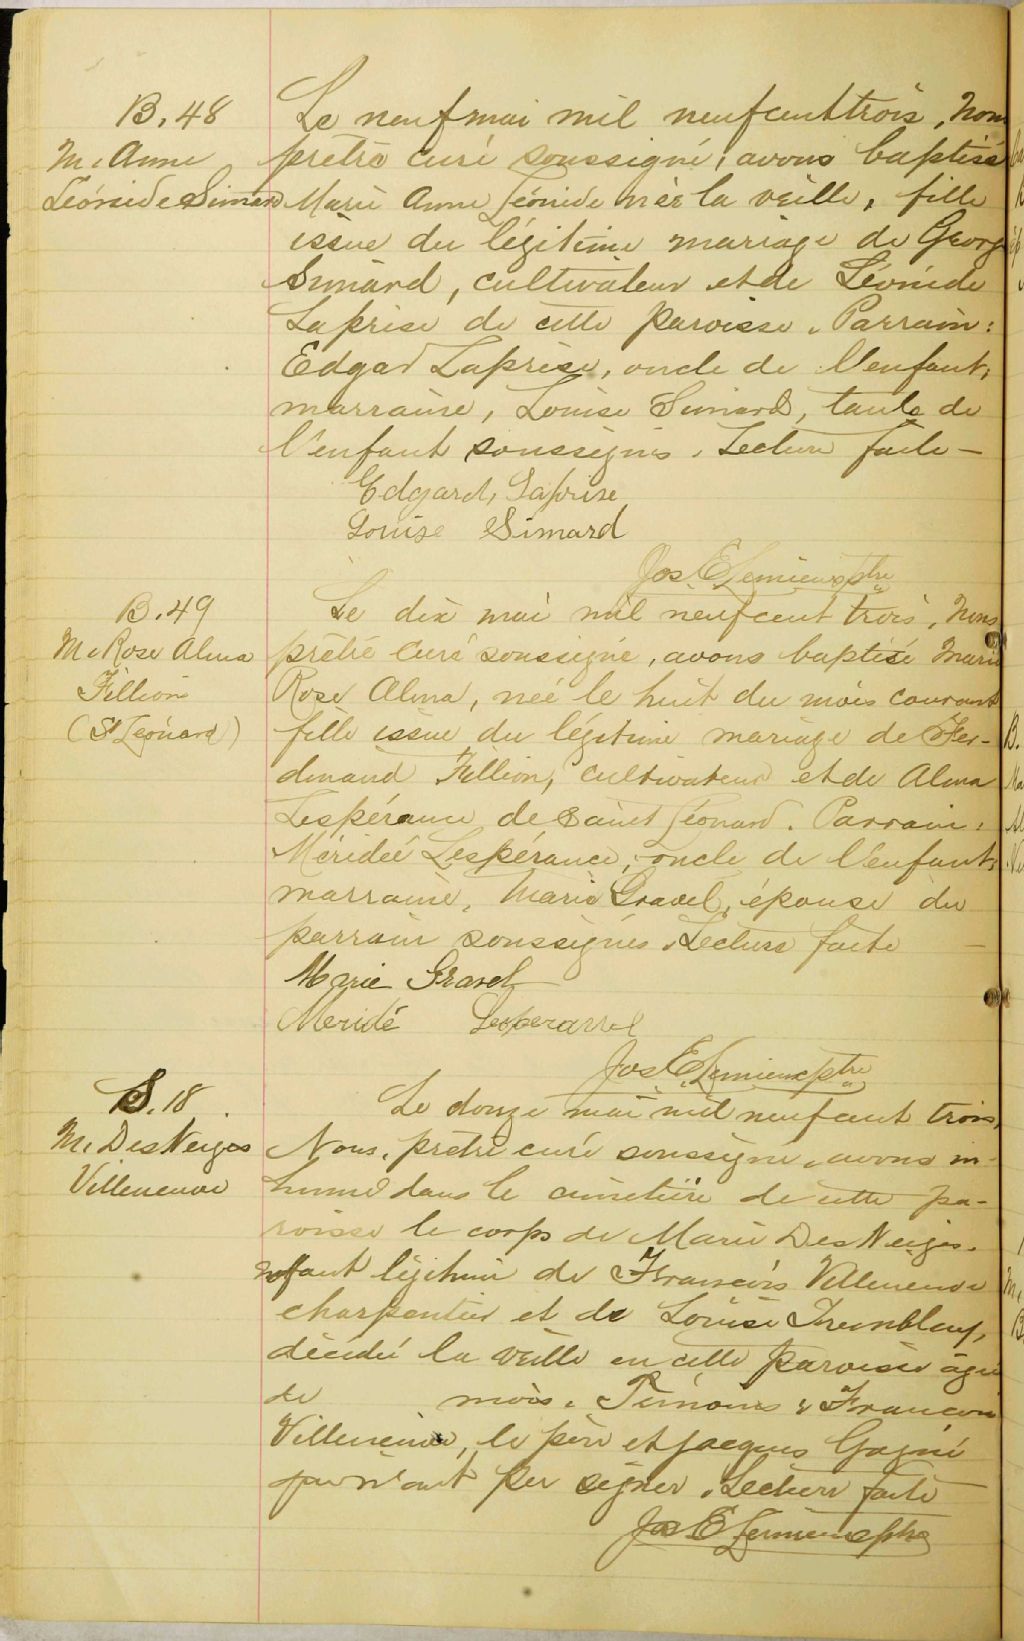 B. 48
M. Anne
Léonide Simard
Le neuf mai mil neufcent trois, Nous
prêtre curé soussigné, avons baptisé
Marie Anne Léonide née la veille, fille
issue du légitime mariage de Georg
Simard, cultivateur et de Léonide
Laprise de cette paroisse. Parrain:
Edgar Laprise, oncle de l'enfant,
marraine, Louise Simard, tante de
l'enfant soussignés. Lecture faite —
Edgard, Laprise
Louise Simard
Jos E Lemieux ptre
B. 49
M. Rose Alma
Fillion
(St Léonard)
Le dix mai mil neufcent trois, Nous
prêtre curé soussigné, avons baptisé Marie
Rose Alma, née le huit du mois courant
fille issue du légitime mariage de Fer-
dinand Fillion, cultivateur et de Alma
Lespérance de Saint Léonard. Parrain:
Méridée Lespérance, oncle de l'enfant,
marraine, Marie Gravel, épouse du
parrain soussignés. Lecture faite —
Marie Gravel
Meridé
Jos E Lemieux ptre
S. 18
M. Des Neiges
Villeneuve
Le douze mai mil neufcent trois,
Nous, prêtre curé soussigné, avons in-
humé dans le cimetière de cette pa-
roisse le corps de Marie Des Neiges.
enfant légitime de François Villeneuve
charpentier et de Louise Tremblay,
décédée la veille en cette paroisse âgée
de mois. Témoins: François
Villeneuve, le père et Jacques Gagné
qui n'ont pu signer. Lecture faite
Jos E Lemieux ptre